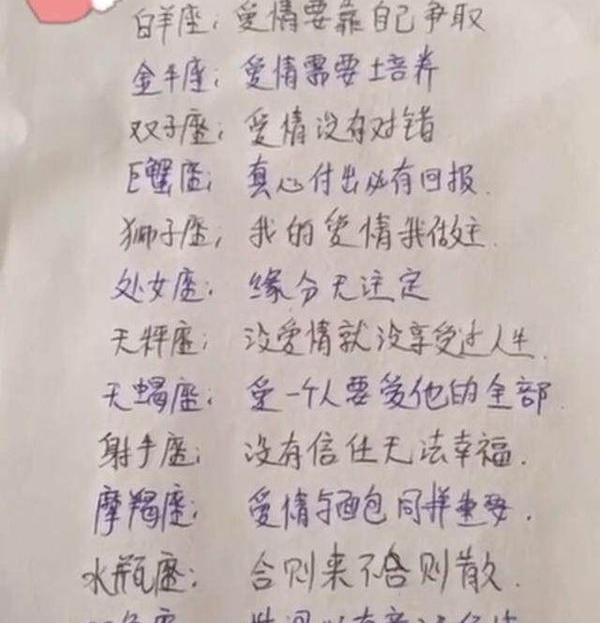 白羊座：爱情要靠自己争取
金牛座：爱情需要培养
双子座：爱情没有对错
巨蟹座：真心付出必有回报.
狮子座：我的爱情我做主.
处女座：缘分天注定
天秤座：没爱情就没享受过人生.
天蝎座：爱一个人要爱他的全部.
射手座：没有信任无法幸福.
摩羯座：爱情与面包同样重要.
水瓶座：合则来不合则散.